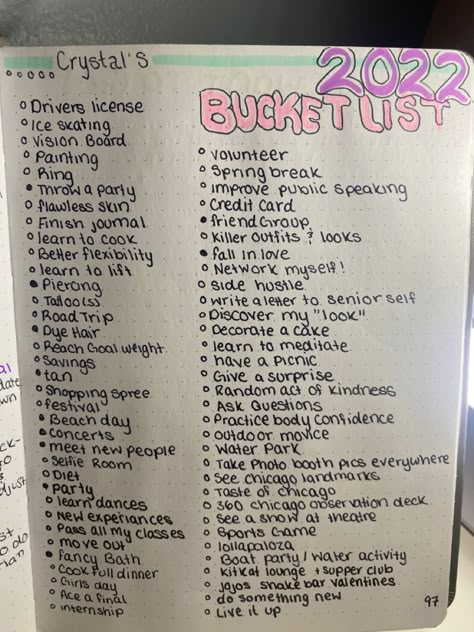 Crystal's
2022
BUCKET LIST
Drivers license
Ice skating
Vision Board
Painting
Ring
Throw a party
flawless skin
Finish journal
learn to cook
Better flexibility
learn to lift
Piercing
Tattoo(s)
Road Trip
Dye Hair
Reach Goal weight
Savings
tan
Shopping spree
festival
Beach day
concerts
meet new people
Selfie Room
Diet
Party
learn dances
New experiances
Pass all my classes
move out
fancy Bath
Cook full dinner
Girls day
Ace a final
internship
volunteer
Spring break
improve public speaking
Credit Card
friend Group
Killer outfits & looks
fall in love
Network myself!
side hustle
write a letter to senior self
Discover my "look"
Decorate a cake
learn to meditate
have a picnic
Give a surprise
Random act of kindness
Ask Questions
Practice body confidence
outdoor movice
Water Park
Take Photo booth pics everywhere
See chicago landmarks
Taste of chicago
360 chicago observation deck
See a show at theatre
Sports Game
lollapaloza
Boat party / water activity
kitkat lounge + supper club
jojos shake bar valentines
do something new
Live it up
97